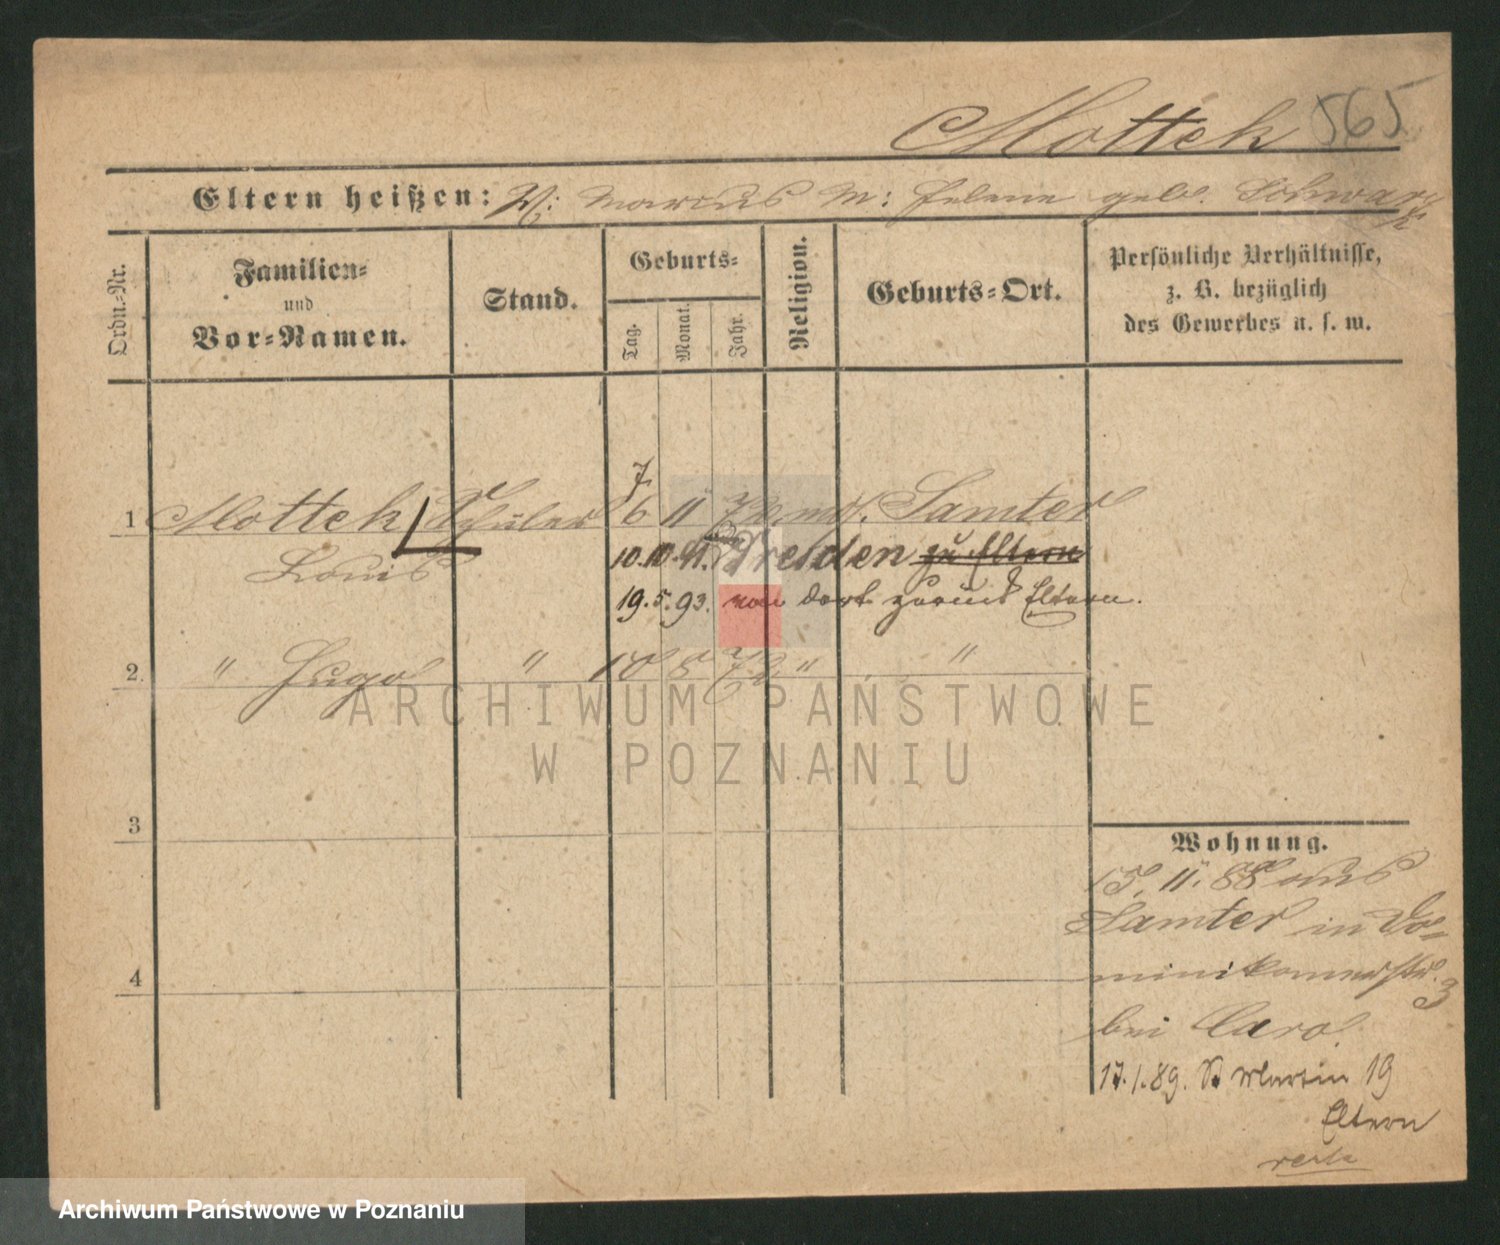 Mottek 565
Eltern heißen: V: Marcus M: Helene geb. Schwarz
Ordn.-Nr.
Familien- und Vor-Namen.
Stand.
Geburts-
Tag.
Monat.
Jahr.
Religion.
Geburts-Ort.
Persönliche Verhältnisse,
z. B. bezüglich
des Gewerbes u. s. w.
7
1 Mottek Schüler 6 11 mos. Samter
Louis 10.10.91. Dresden zu Eltern
19.5.93. von dort zurück Eltern.
2. " Hugo " 10 8 72 " "
3
4
Wohnung.
15. 11. 88 aus
Samter in Do-
minikanerstr. 3
bei Caro.
17.1.89. St Martin 19
Eltern
ARCHIWUM PAŃSTWOWE
W POZNANIU
Archiwum Państwowe w Poznaniu